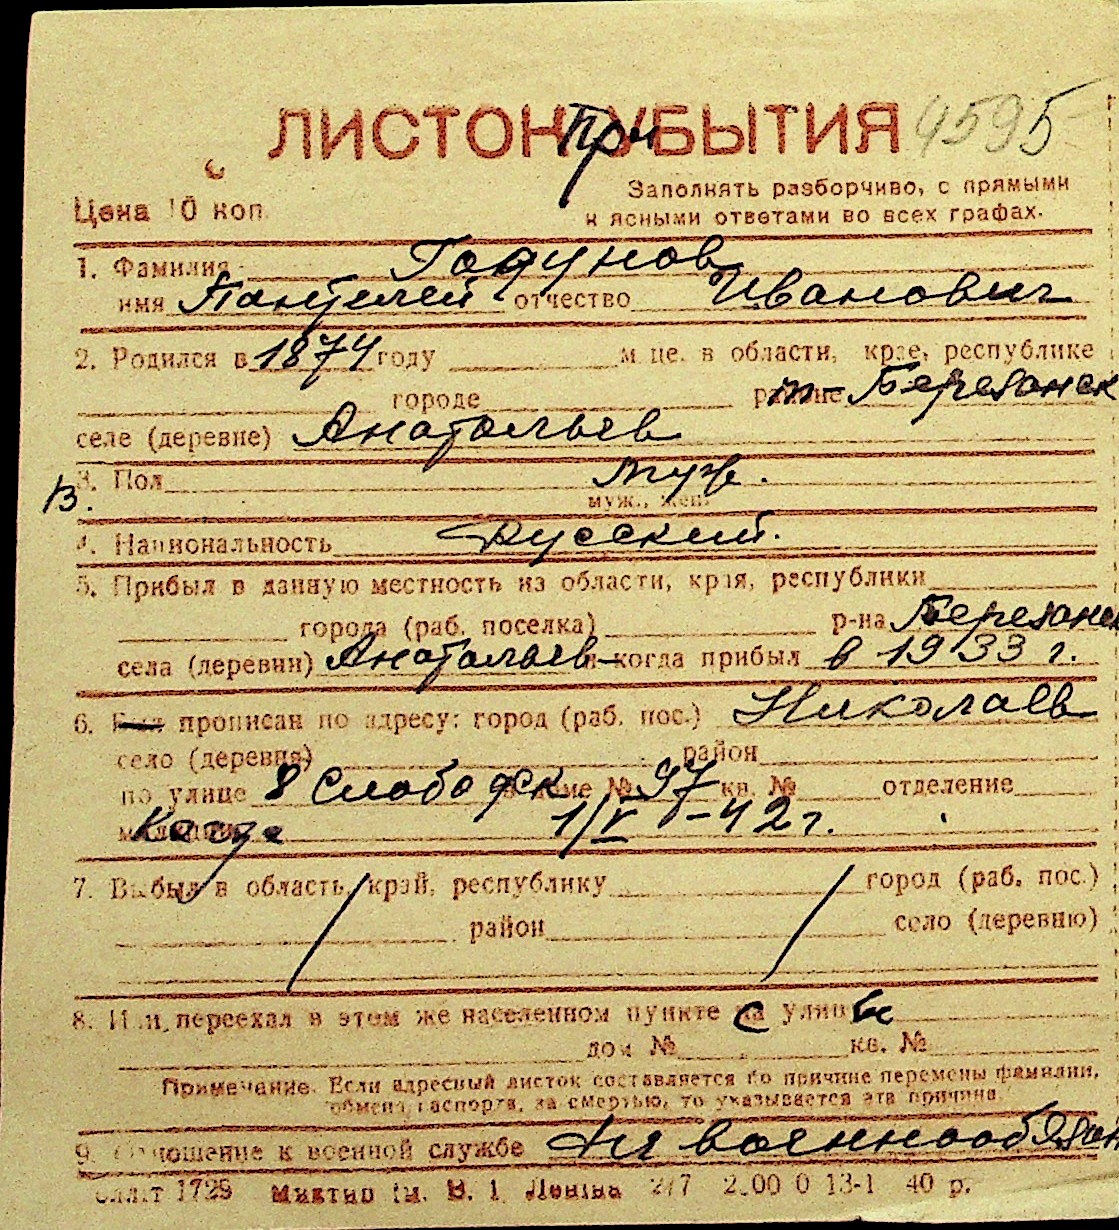 ЛИСТОК ПриБЫТИЯ 4595
Цена 10 коп.
Заполнять разборчиво, с прямыми
и ясными ответами во всех графах.
1. Фамилия Годунов
имя Пантелей отчество Иванович
2. Родился в 1874 году м-це. в области, крае, республике
городе районе Березанск
селе (деревне) Анатольев
3. Пол муж.
В. муж., жен.
4. Национальность Русский.
5. Прибыл в данную местность из области, края, республики
города (раб. поселка) р-на Березанск
села (деревни) Анатольев и когда прибыл в 1933 г.
6. прописан по адресу: город (раб. пос.) Николаев
село (деревня) район
по улице 8 Слободск доме № 97 кв. № отделение
милиции 1/V-42 г.
7. Выбыл в область, край, республику город (раб. пос.)
район село (деревню)
8. Или переехал в этом же населенном пункте с улицы
дом № кв. №
Примечание. Если адресный листок составляется по причине перемены фамилии,
обмена паспорта, за смертью, то указывается эта причина
9. Отношение к военной службе Не военнообязан
1729 им. В. І. Леніна 2/7 13-1 40 р.